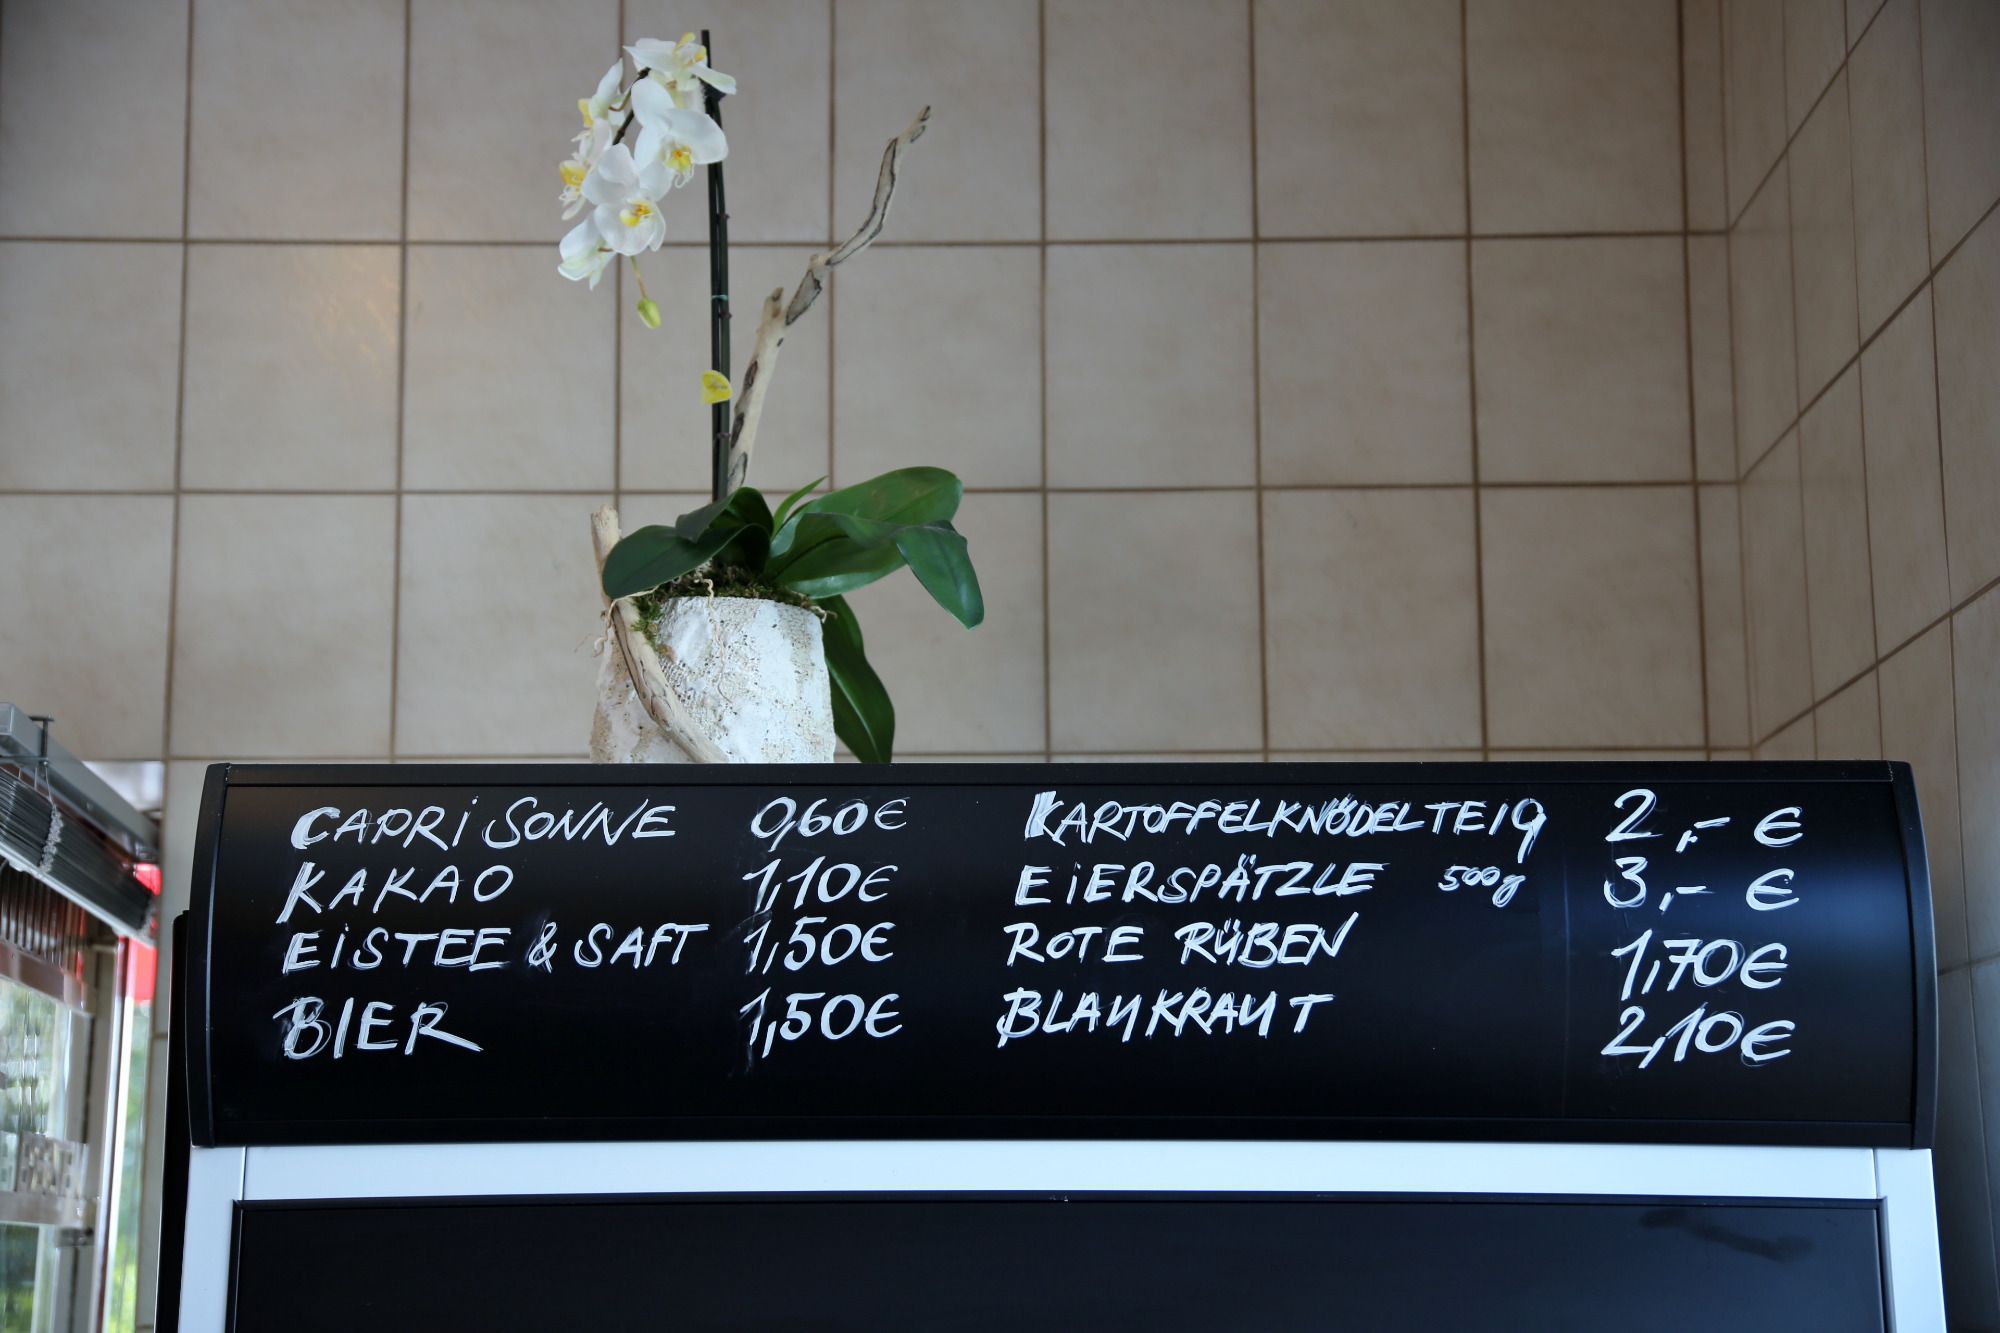 CAPRI SONNE 0,60€
KAKAO 1,10€
EISTEE & SAFT 1,50€
BIER 1,50€
KARTOFFELKNÖDELTEIG 2,- €
EIERSPÄTZLE 500g 3,- €
ROTE RÜBEN 1,70€
BLAUKRAUT 2,10€